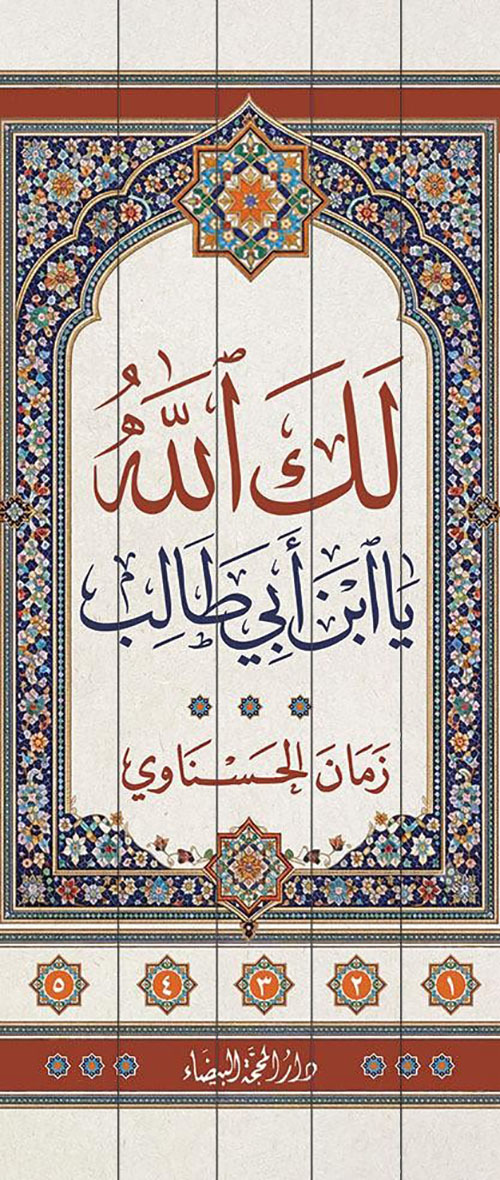 لَكَ ٱللَّٰهُ
يَا ٱبْنَ أَبِي طَالِب
زَمَانَ الْحَسْنَاوي
١ ٢ ٣ ٤ ٥
دار المحجّة البيضاء